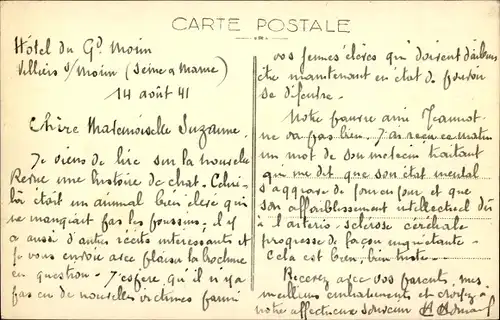 CARTE POSTALE
Hôtel du Gd Morin
Villiers s/Morin (Seine & Marne)
14 août 41
Chère Mademoiselle Suzanne.
Je viens de lire sur la nouvelle
Revue une histoire de chat. Celui-
là était un animal bien élevé qui
ne mangeait pas les poussins; il y
a aussi d'autres récits intéressants et
je vous envoie avec plaisir la brochure
en question. J'espère qu'il n'y a
pas eu de nouvelles victimes parmi
vos jeunes élèves qui doivent d'ailleurs
être maintenant en état de pouvoir
se défendre.
Notre pauvre ami Jeannot
ne va pas bien. J'ai reçu ce matin
un mot de son médecin traitant
qui me dit que son état mental
s'aggrave de jour en jour et que
son affaiblissement intellectuel dû
à l'artério-sclérose cérébrale
progresse de façon inquiétante.
Cela est bien, bien triste.
Recevez avec vos parents, mes
meilleurs embrassements et croyez à
notre affectueux souvenir